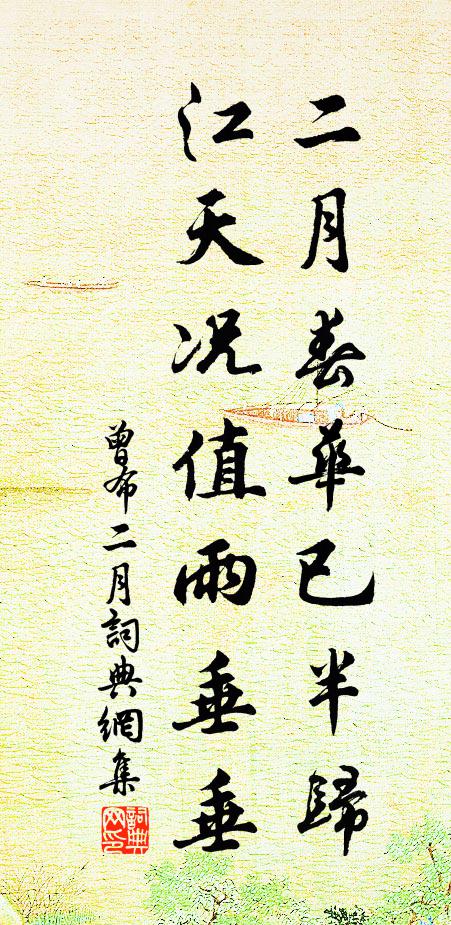 二月春華已半歸
江天况值雨垂垂
曾布二月詞典網集
詞典網印